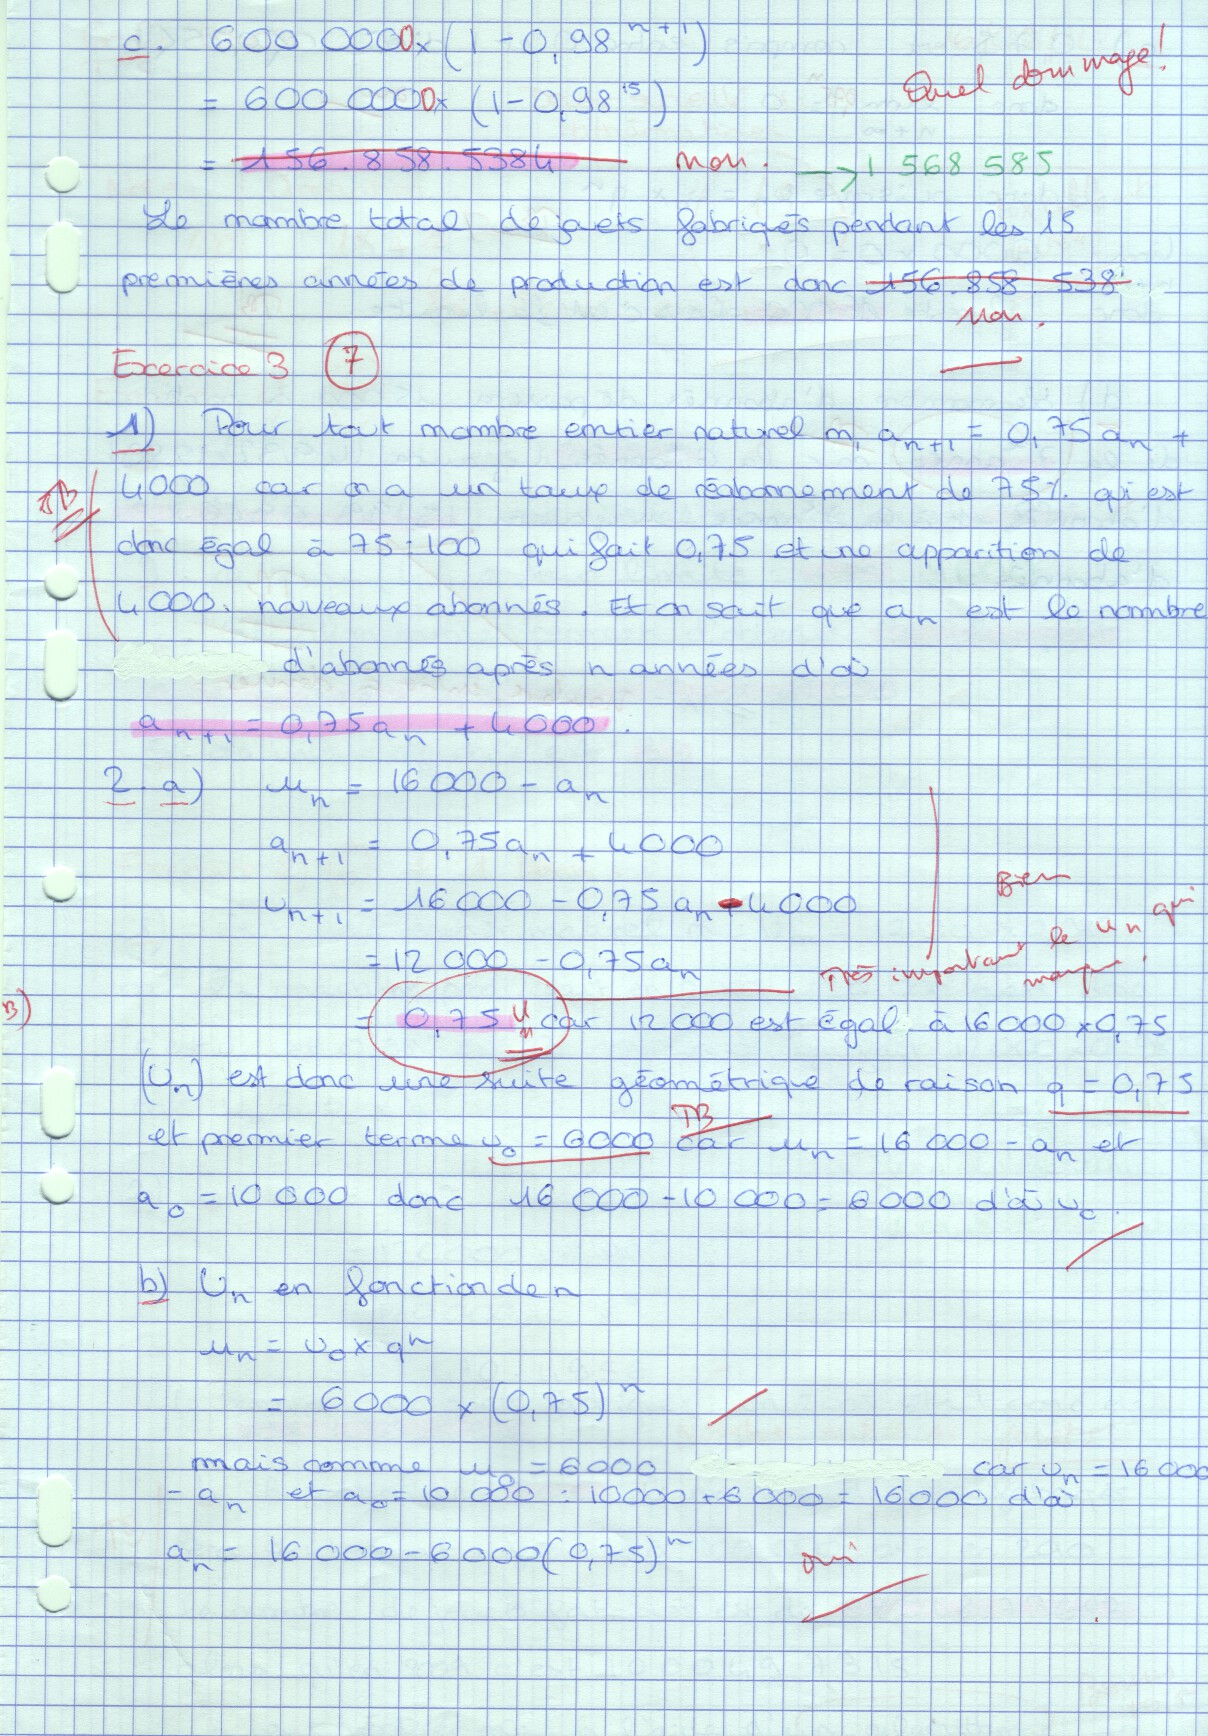 c. 600 0000x (1-0,98^n+1)
Quel dommage!
= 600 0000x (1-0,98^15)
= 156.858.5384 non. → 1 568 585
Le nombre total de jouets fabriqués pendant les 15
premières années de production est donc 156.858.538
Non.
Exercice 3 7
1) Pour tout nombre entier naturel n, a_n+1 = 0,75a_n +
4000 car on a un taux de réabonnement de 75% qui est
TB
donc égal à 75:100 qui fait 0,75 et une apparition de
4000. nouveaux abonnés. Et on sait que a_n est le nombre
d'abonnés après n années d'où
a_n+1 = 0,75a_n + 4000.
2. a) u_n = 16000 - a_n
a_n+1 = 0,75a_n + 4000
Bien
u_n+1 = 16000 - 0,75a_n - 4000
= 12 000 - 0,75a_n
Très important le u_n qui
manque!
B) = 0,75 u_n car 12000 est égal à 16000 x 0,75
(U_n) est donc une suite géométrique de raison q = 0,75
TB
et premier terme u_0 = 6000 car u_n = 16 000 - a_n et
a_0 = 10 000 donc 16 000 - 10 000 = 6000 d'où u_0.
b) U_n en fonction de n
u_n = u_0 x q^n
= 6000 x (0,75)^n
mais comme u_0 = 6000 car u_n = 16000
- a_n et a_0 = 10 000 : 10000 + 6000 = 16000 d'où
a_n = 16 000 - 6 000 (0,75)^n
oui